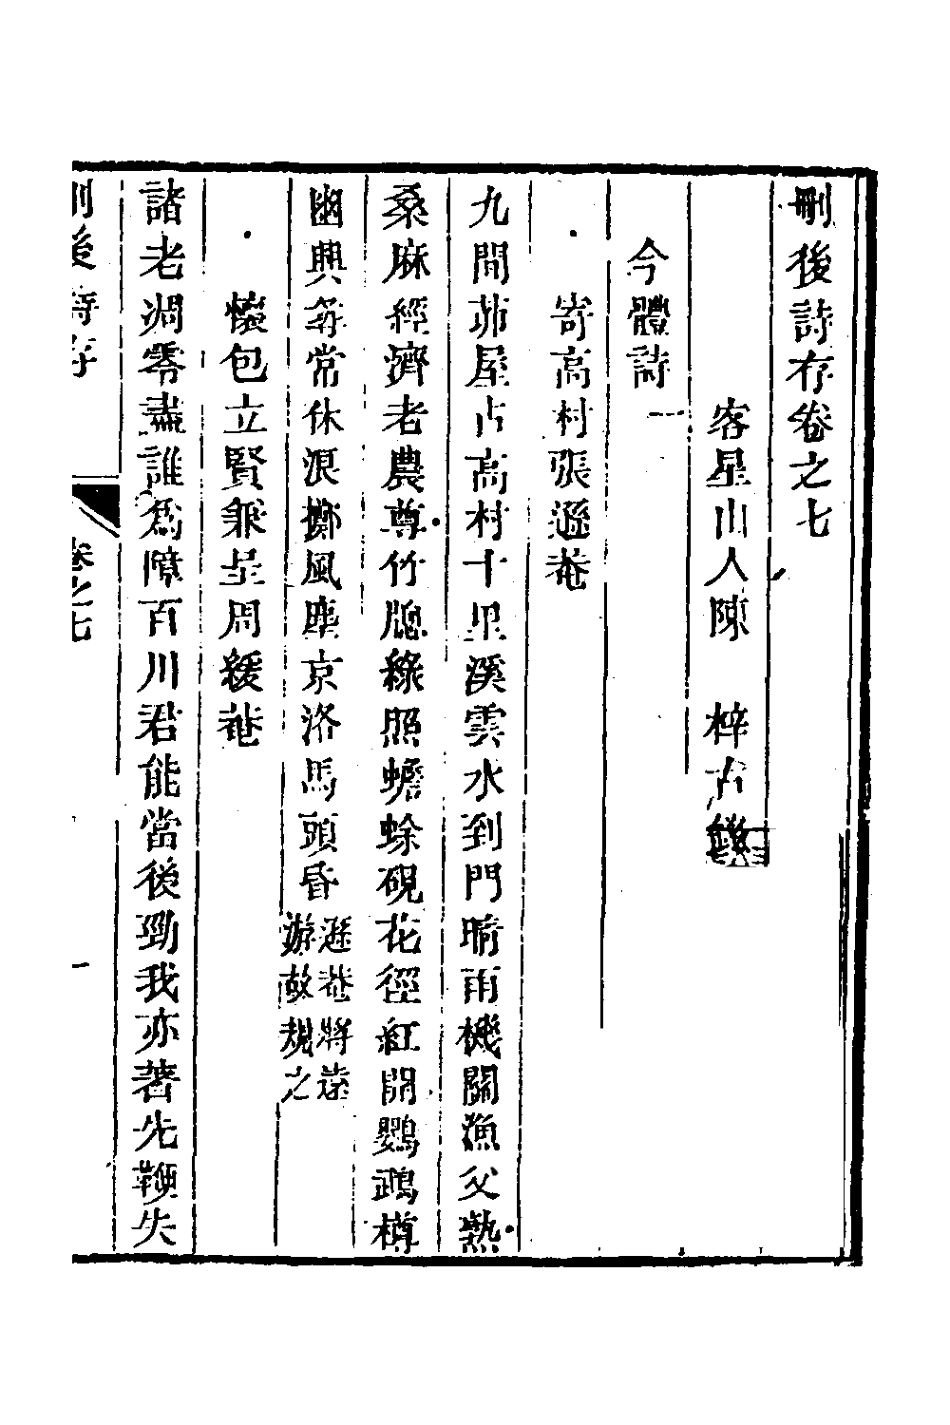 刪後詩存卷之七
客星山人陳　梓古
今體詩
寄高村張遜菴
九間茆屋占高村十里溪雲水到門晴雨機關漁父熟
桑麻經濟老農尊竹牕綠照蟾蜍硯花徑紅開鸚鵡樽
幽興每常休浪擲風塵京洛馬頭昏遜菴將遠
游故規之
懷包立賢兼呈周緩菴
諸老凋零盡誰爲障百川君能當後勁我亦著先鞭失
刪後詩存
卷之七
一